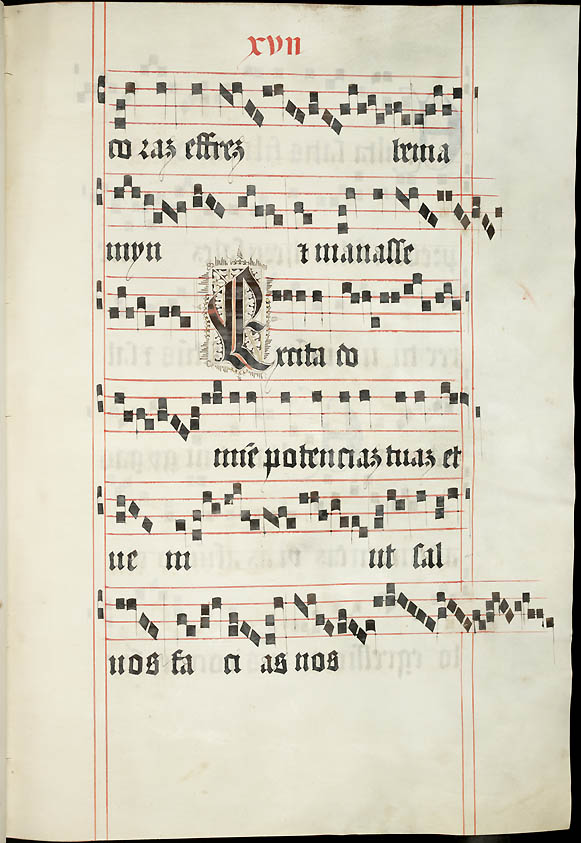 xvii
co raz effrez beniamyn
myn ⁊ manasse
Excita do
mīe potenciaz tuaz et
ue ni ut sal
uos fa ci as nos